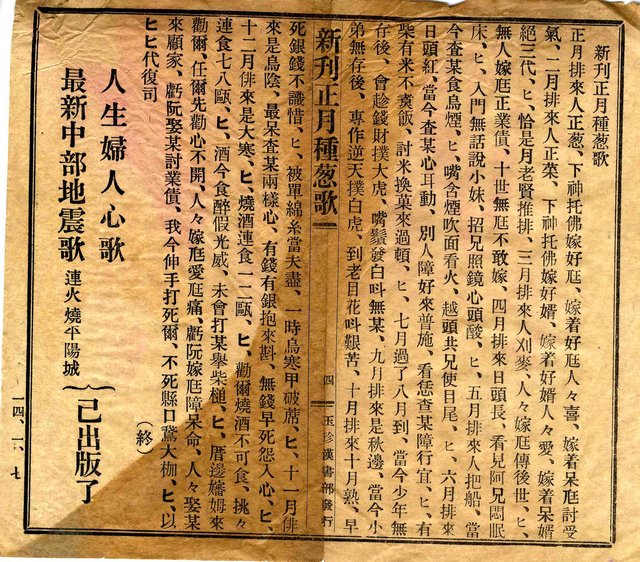 新刊正月種葱歌
正月排來人正葱、下神托佛嫁好尫、嫁着好尫人々喜、嫁着呆尫討受
氣、二月排來人正菜、下神托佛嫁好婿、嫁着好婿人々愛、嫁着呆婿
絕三代、ヒ、恰是月老賢推排、三月排來人刈麥、人々嫁尫傳後世、ヒ、
無人嫁尫正業債、十世無尫不敢嫁、四月排來日頭長、看見阿兄悶眠
床、ヒ、入門無話說小妹、招兄照鏡心頭酸、ヒ、五月排來人把船、當
今查某食鳥煙、ヒ、嘴含煙吹面看火、越頭共兄使目尾、ヒ、六月排來
日頭紅、當今查某心耳動、別人障好來普施、看恁查某障行宜、ヒ、有
柴有米不㷛飯、討米換菓來過頓、ヒ、七月過了八月到、當今少年無
存後、會趁錢財撲大虎、嘴鬚發白叫無某、九月排來是秋邊、當今小
弟無存後、專作逆天撲白虎、到老目花叫艱苦、十月排來十月熟、早
新刊正月種葱歌
四
玉珍漢書部發行
死銀錢不識惜、ヒ、被單綿糸當夫盡、一時鳥寒甲破席、ヒ、十一月俳
來是鳥陰、最呆查某兩樣心、有錢有銀抱來斟、無錢早死怨入心、ヒ、
十二月俳來是大寒、ヒ、燒酒連食一二甌、ヒ、勸爾燒酒不可食、挑々
連食七八甌、ヒ、酒今食醉假光威、未會打某舉柴槌、ヒ、厝邊嬸姆來
勸爾、任爾先勸心不開、人々嫁尫愛尫痛、虧阮嫁尫障呆命、人々娶某
來顧家、虧阮娶某討業債、我今伸手打死爾、不死縣口鵞大枷、ヒ、以
ヒヒ代復司
(終)
人生婦人心歌
最新中部地震歌 連火燒平陽城
己出版了
一四、一、七